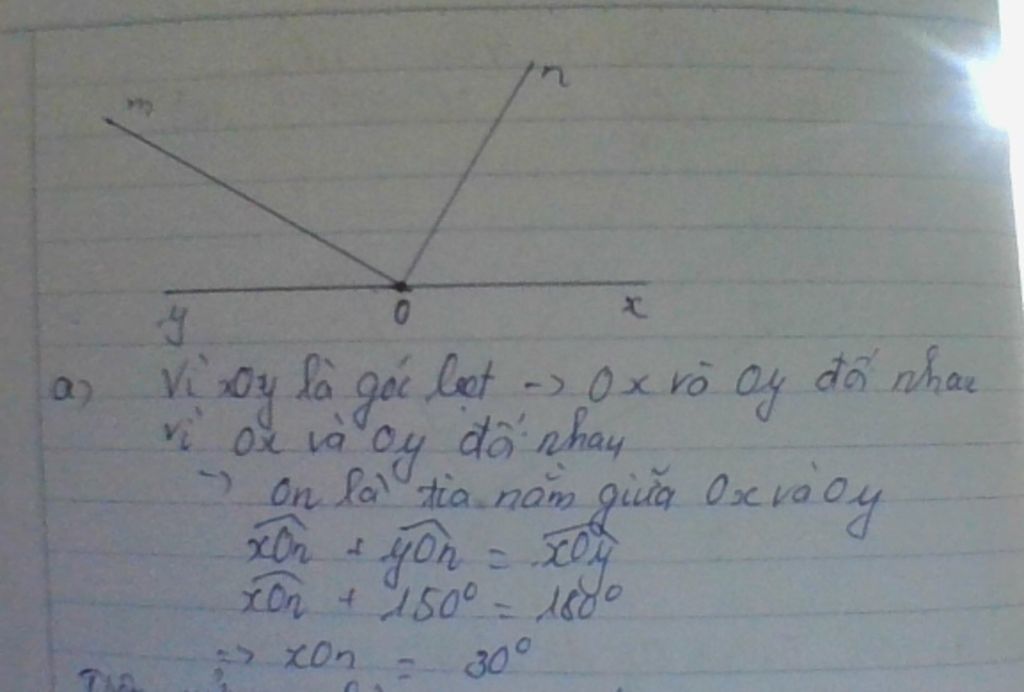 m n
y O x
a) Vì xOy là góc bẹt -> Ox và Oy đối nhau
Vì Ox và Oy đối nhau
-> On là tia nằm giữa Ox và Oy
xOn + yOn = xOy
xOn + 150° = 180°
=> xOn = 30°